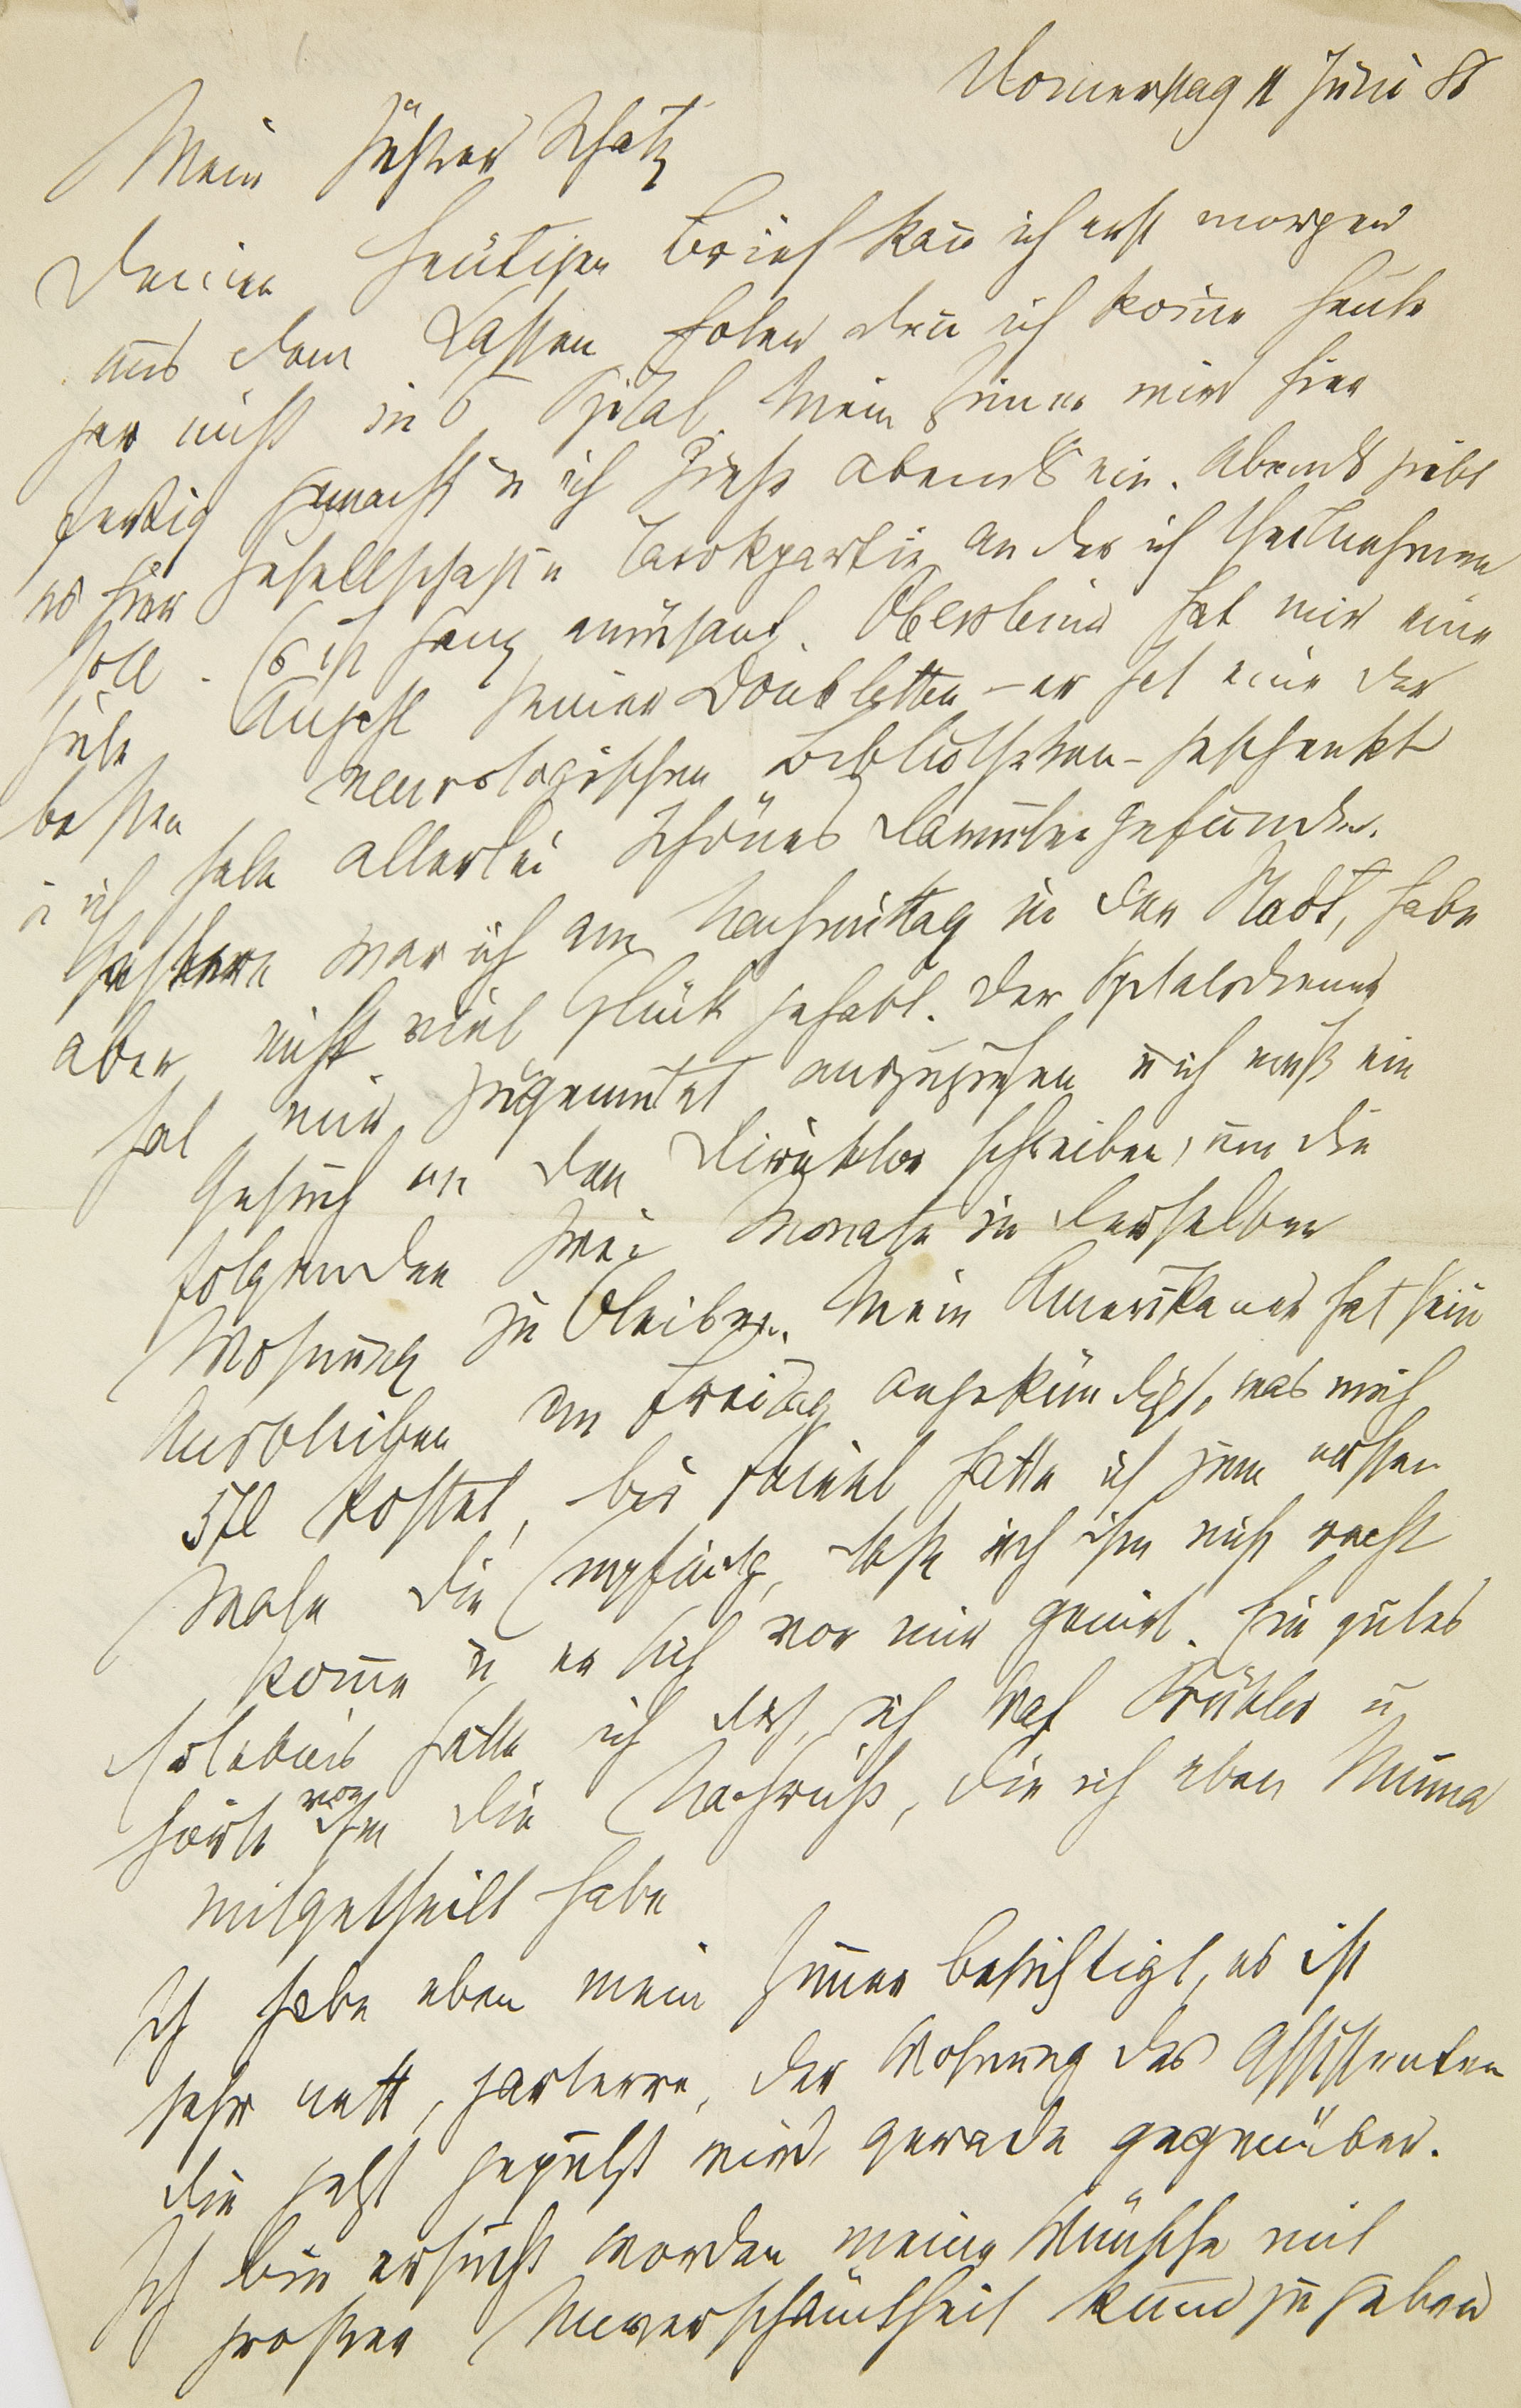 Donnerstag 11 Juni 85
Mein süßer Schatz
Deinen heutigen Brief kann ich erst morgen
aus dem Kasten holen denn ich komme heute
gar nicht ins Spital. Mein Zimmer wird hier
fertig gemacht u ich ziehe abends ein. Abends giebt
es hier Gesellschaft u Tarokpartie an der ich theilnehmen
soll. Es ist ganz amüsant. Obersteiner hat mir eine
gute Anzahl seiner Doubletten – er hat eine der
besten neurologischen Bibliotheken – geschenkt
u ich habe allerlei Schönes darunter gefunden.
Gestern war ich am Nachmittag in der Stadt, habe
aber nicht viel Glück gehabt. Der Spitalsdiener
hat mir zugemutet auszuziehen u ich muß ein
Gesuch an den Direktor schreiben, um die
folgenden zwei Monate in derselben
Wohnung zu bleiben. Mein Amerikaner hat sein
Ausbleiben am Freitag angekündigt, was mich
5 fl kostet, bei hatte ich zum ersten
Male die Empfindg, daß ich ihm nicht recht
komme u er sich vor mir genirt. Ein gutes
Erlebnis hatte ich doch, ich traf u
hörte von ihm die Nachricht, die ich eben Minna
mitgetheilt habe
Ich habe eben mein Zimmer besichtigt, es ist
sehr nett, parterre, der Wohnung des Assistenten
die jetzt geputzt wird, gerade gegenüber.
Ich bin ersucht worden meine Wünsche mit
großer Unverschämtheit kund zu geben